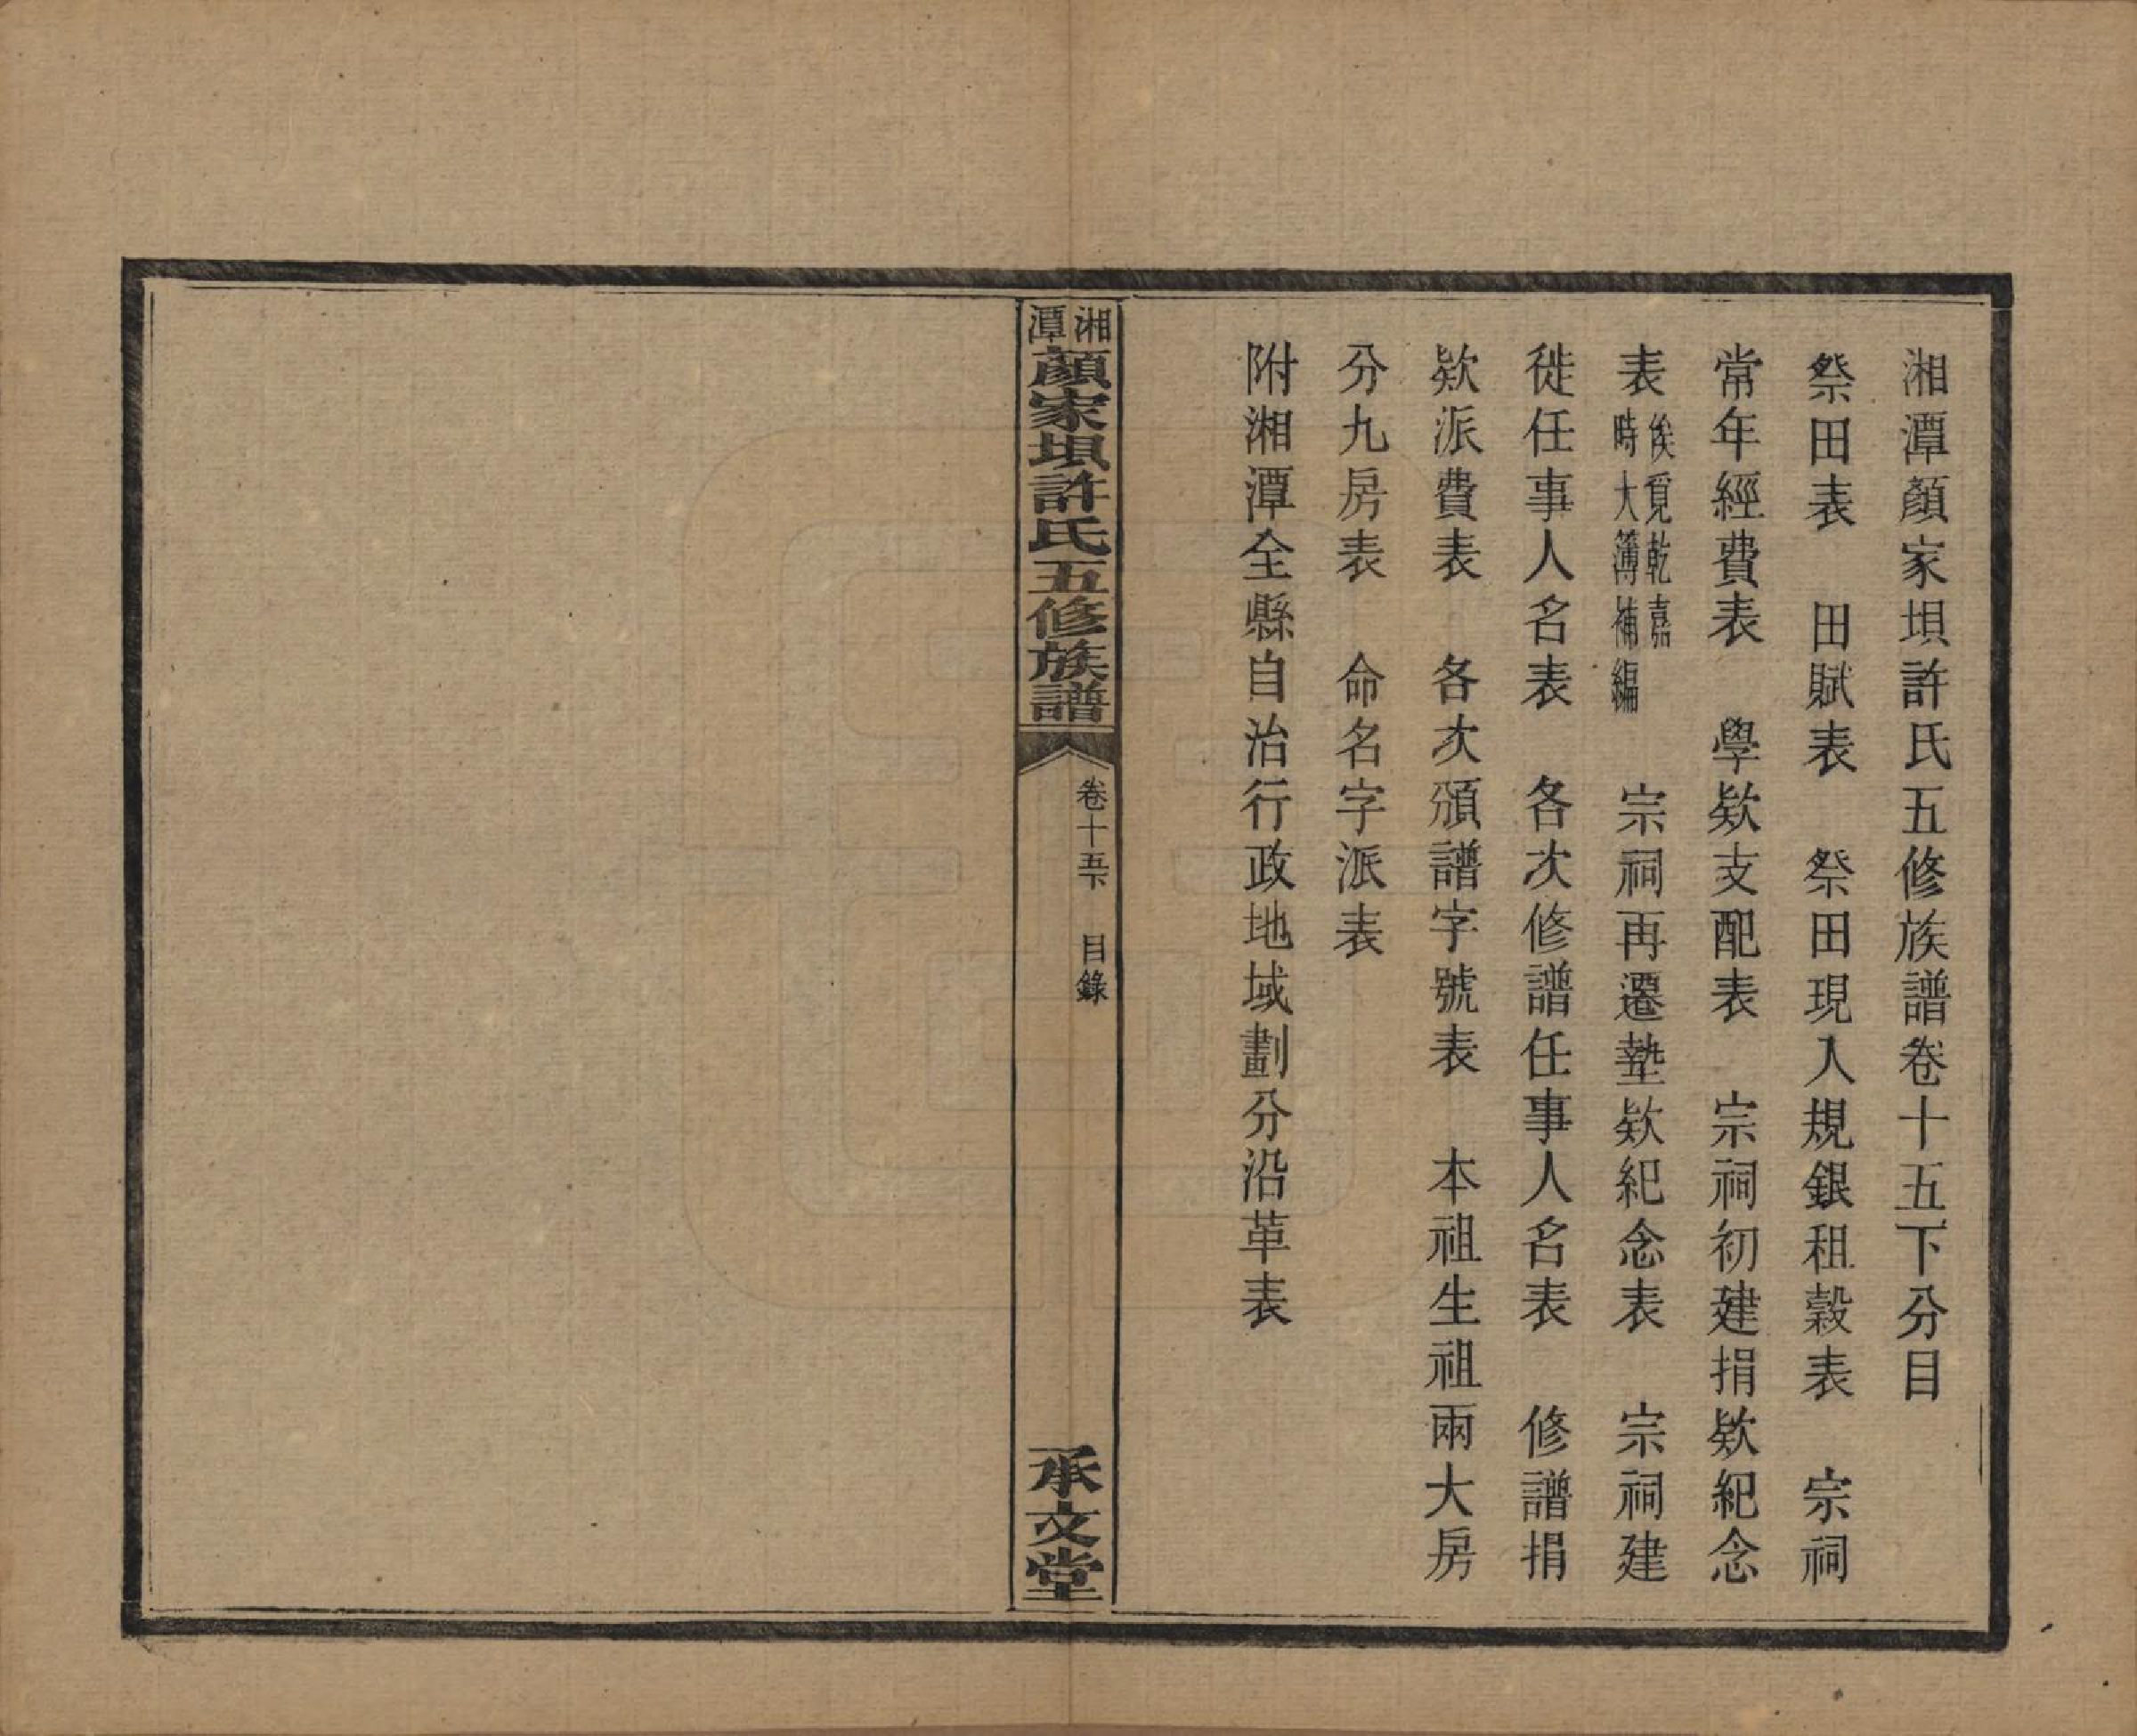 湘潭顏家垻許氏五修族譜卷十五下分目
祭田表　田賦表　祭田現入規銀租穀表　宗祠
常年經費表　學欵支配表　宗祠初建捐欵紀念
表俟覓乾嘉時大簿補編　宗祠再遷墊欵紀念表　宗祠建
徙任事人名表　各次修譜任事人名表　修譜捐
欵派費表　各次頒譜字號表　本祖生祖兩大房
分九房表　命名字派表
附湘潭全縣自治行政地域劃分沿革表
湘潭顏家垻許氏五修族譜
卷十五下　目錄
承文堂